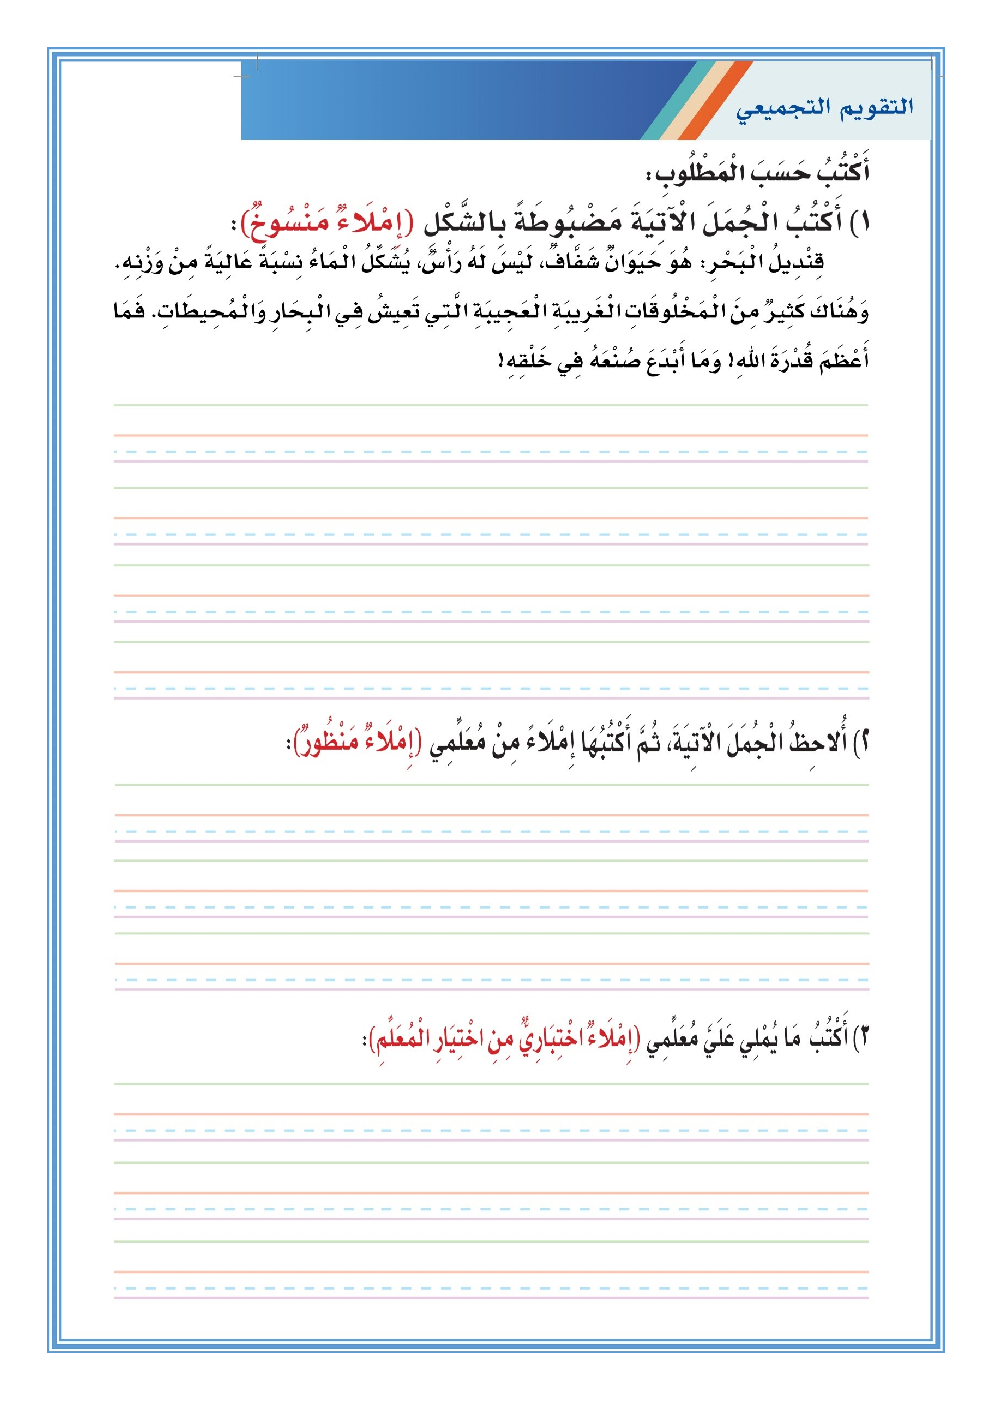 التقويم التجميعي
أَكْتُبُ حَسَبَ الْمَطْلُوبِ:
١) أَكْتُبُ الْجُمَلَ الْآتِيَةَ مَضْبُوطَةً بِالشَّكْلِ (إِمْلَاءٌ مَنْسُوخٌ):
قِنْدِيلُ الْبَحْرِ: هُوَ حَيَوَانٌ شَفَّافٌ، لَيْسَ لَهُ رَأْسٌ، يُشَكِّلُ الْمَاءُ نِسْبَةً عَالِيَةً مِنْ وَزْنِهِ.
وَهُنَاكَ كَثِيرٌ مِنَ الْمَخْلُوقَاتِ الْغَرِيبَةِ الْعَجِيبَةِ الَّتِي تَعِيشُ فِي الْبِحَارِ وَالْمُحِيطَاتِ. فَمَا
أَعْظَمَ قُدْرَةَ اللهِ! وَمَا أَبْدَعَ صُنْعَهُ فِي خَلْقِهِ!
٢) أُلَاحِظُ الْجُمَلَ الْآتِيَةَ، ثُمَّ أَكْتُبُهَا إِمْلَاءً مِنْ مُعَلِّمِي (إِمْلَاءٌ مَنْظُورٌ):
٣) أَكْتُبُ مَا يُمْلِي عَلَيَّ مُعَلِّمِي (إِمْلَاءٌ اخْتِبَارِيٌّ مِنِ اخْتِيَارِ الْمُعَلِّمِ):